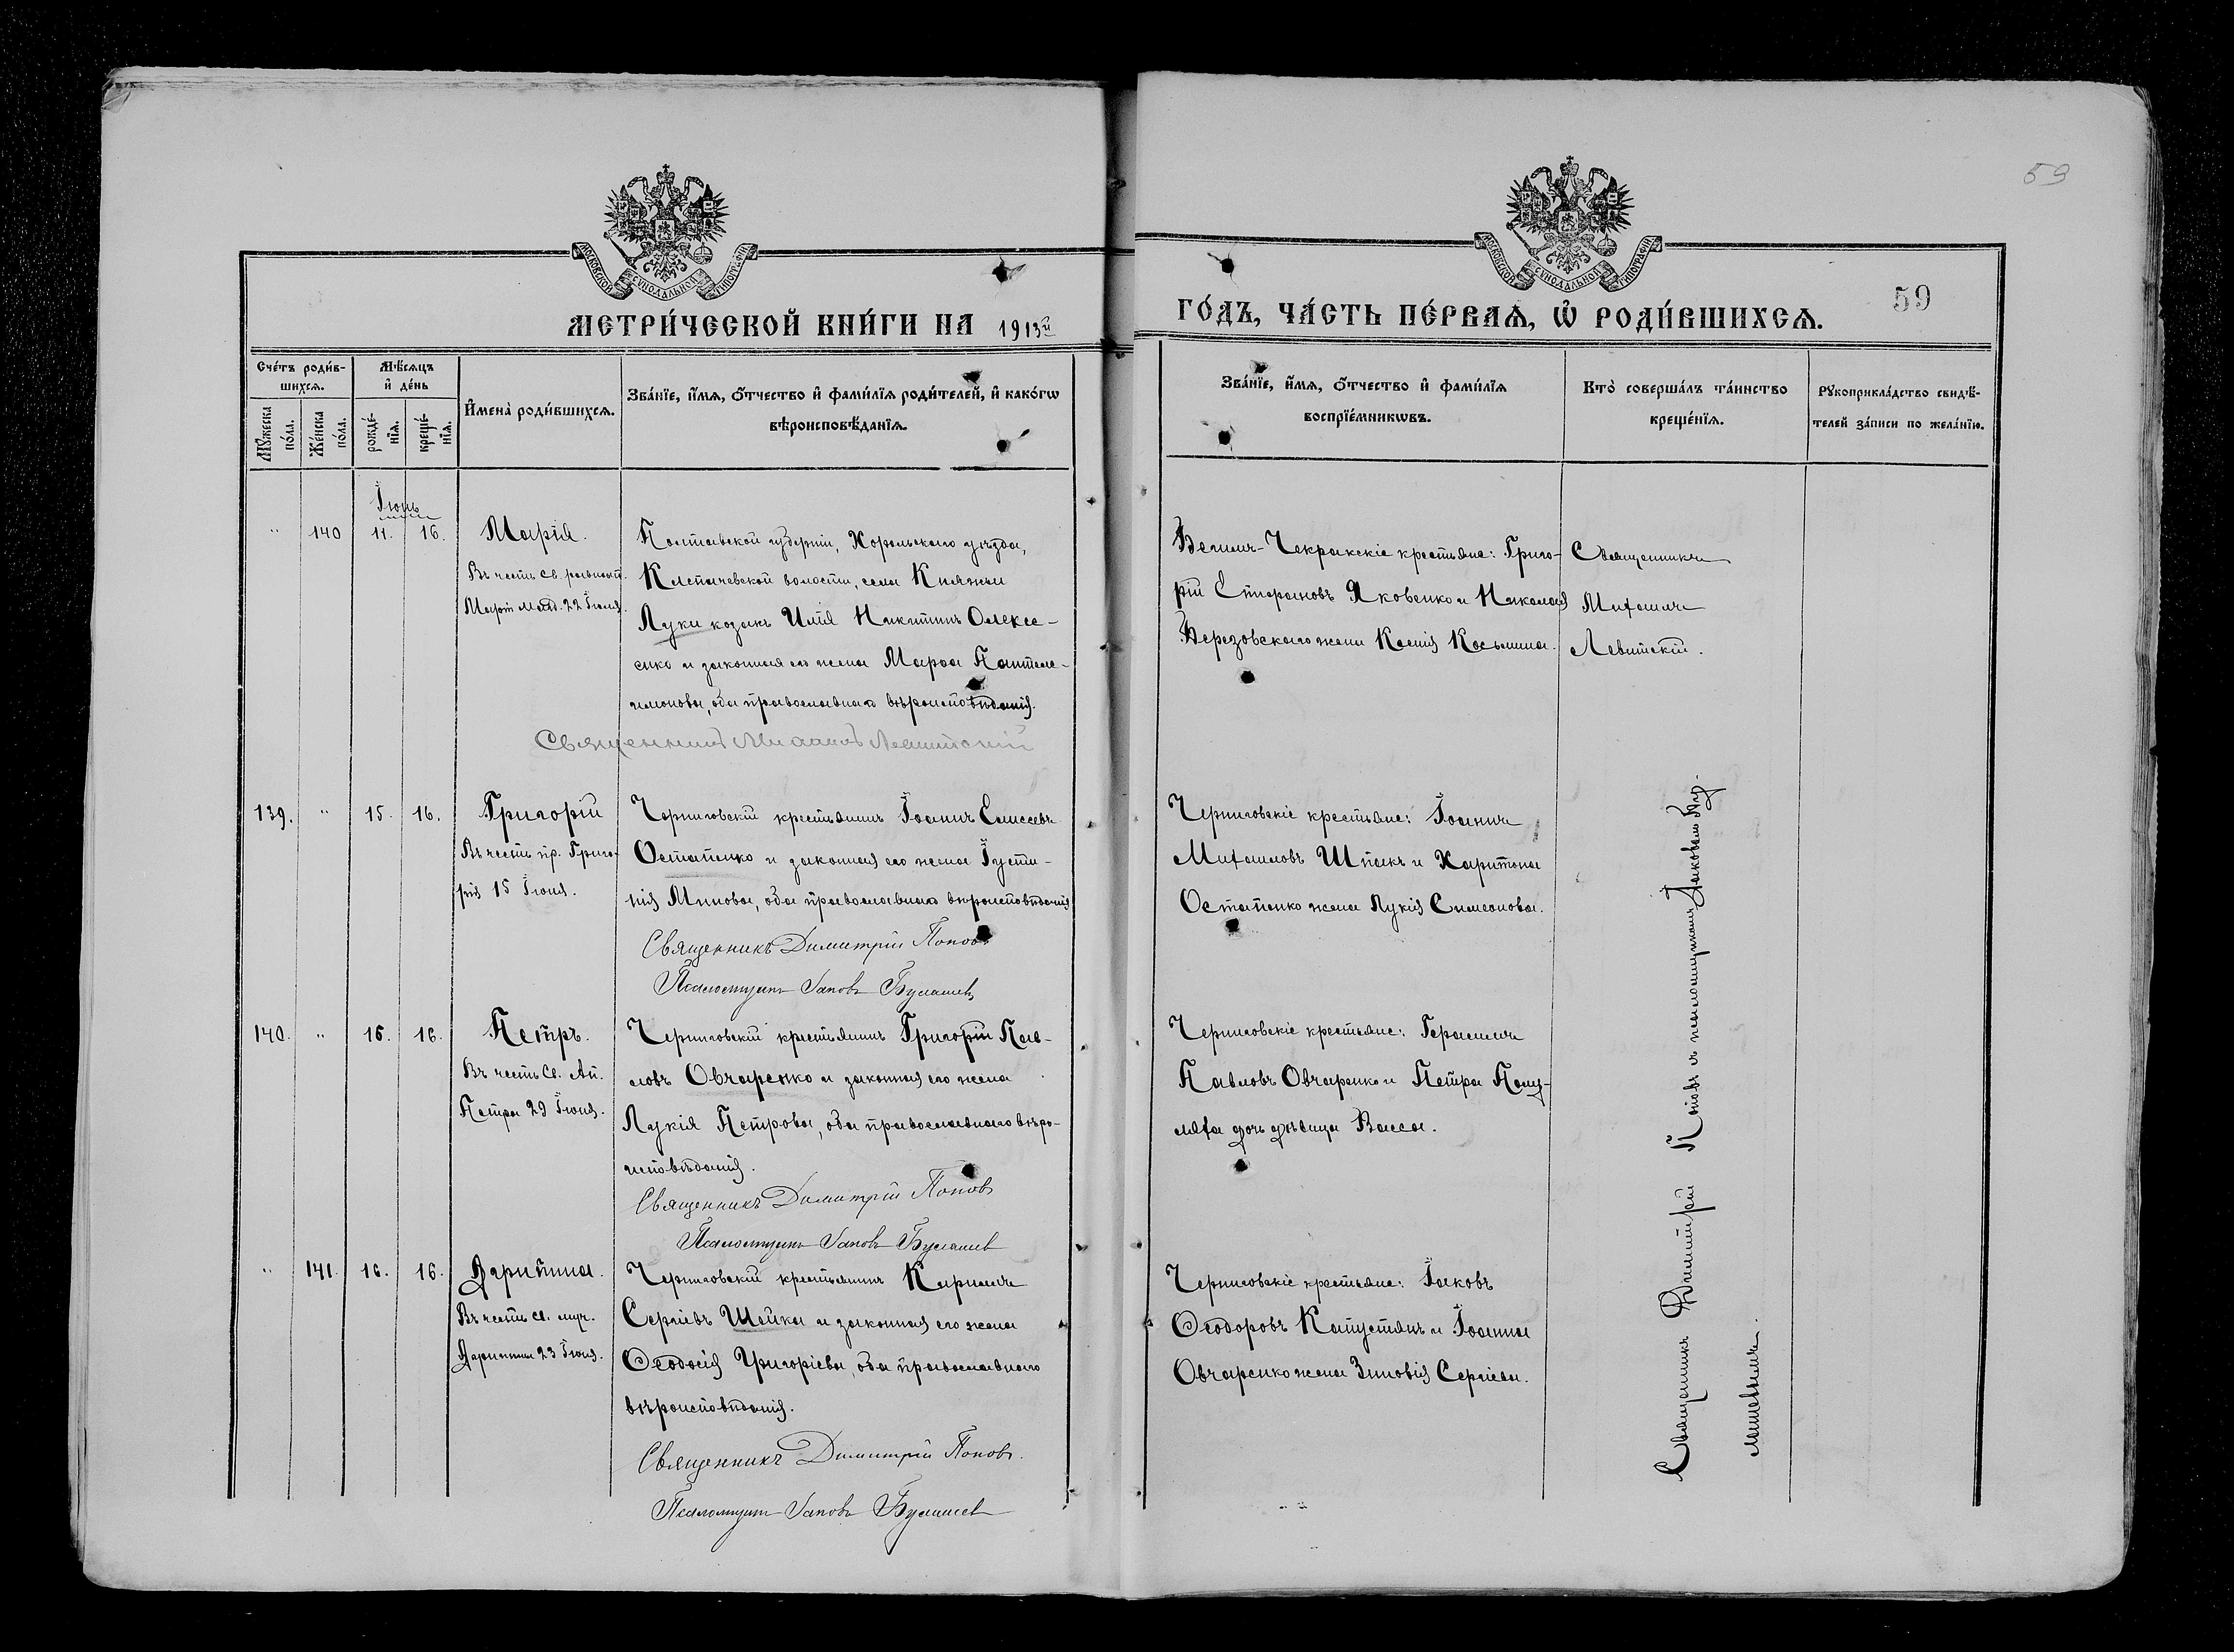 59
МОСКОВСКОЙ СУНОДАЛЬНОЙ ТИПОГРАФІИ
МОСКОВСКОЙ СУНОДАЛЬНОЙ ТИПОГРАФІИ
МЕТРИ́ЧЕСКОЙ КНИ́ГИ НА 1913й
ГО́ДЪ, ЧА́СТЬ ПЕ́РВАѦ, Ѡ҆ РОДИ́ВШИХСѦ.
59
Сче́тъ роди́в-
шихсѧ.
Мѣ́сѧцъ
и҆ де́нь
Мꙋ́жеска
по́ла.
Же́нска
по́ла.
рожде́-
нїѧ.
креще́-
нїѧ.
И҆мена̀ роди́вшихсѧ.
Зва́нїе, и҆́мѧ, ѻ҆́тчество и҆ фами́лїѧ роди́телей, и҆ како́гѡ
вѣроисповѣ́данїѧ.
Зва́нїе, и҆́мѧ, ѻ҆́тчество и҆ фами́лїѧ
воспрїе́мникѡвъ.
Кто̀ соверша́лъ та́инство
креще́нїѧ.
Рꙋкоприкла́дство свидѣ́-
телей за́писи по жела́нїю.
Іюнь
" 140 11. 16. Марія.
Въ честь св. равноап.
Маріи Магд. 22 Іюля.
Полтавской губерніи, Хорольскаго уѣзда,
волости, села Княжьи
Луки козакъ Илія Никитинъ Олексе-
енко и законная его жена Марѳа Пантеле-
имонова, оба православнаго вѣроисповѣданія.
Священникъ Михаилъ Левитскій
Григо-
рій Стефановъ Яковенко и Николая
Березовскаго жена Ксенія Косьмина.
Священникъ
Михаилъ
Левитскій.
139. " 15. 16. Григорій
Въ честь пр. Григо-
рія 15 Іюня.
Черниговскій крестьянинъ Іоаннъ Елисеевъ
Остапенко и законная его жена Іусти-
нія Минова, оба православнаго вѣроисповѣданія
Священникъ Димитрій Поповъ
Псаломщикъ Іаковъ
Черниговскіе крестьяне: Іоаннъ
Михаиловъ Шпакъ и Харитона
Остапенко жена Лукія Симеонова.
140. " 16. 16. Петръ.
Въ честь св. Ап.
Петра 29 Іюня.
Черниговскій крестьянинъ Григорій Пав-
ловъ Овчаренко и законная его жена
Лукія Петрова, оба православнаго вѣро-
исповѣданія.
Священникъ Димитрій Поповъ
Псаломщикъ Іаковъ
Черниговскіе крестьяне: Герасимъ
Павловъ Овчаренко и Петра
дочь дѣвица Васса.
" 141. 16. 16. Агрипина.
Въ честь св. муч.
Агрипины 23 Іюня.
Черниговскій крестьянинъ Кириллъ
Сергіевъ Шейка и законная его жена
Ѳеодосія Григоріева, оба православнаго
вѣроисповѣданія.
Священникъ Димитрій Поповъ.
Псаломщикъ Іаковъ
Черниговскіе крестьяне: Іаковъ
Ѳеодоровъ Капустянъ и Іоанна
Овчаренко жена Зиновія Сергіева.
Священникъ Димитрій Поповъ съ псаломщикомъ Іаковомъ